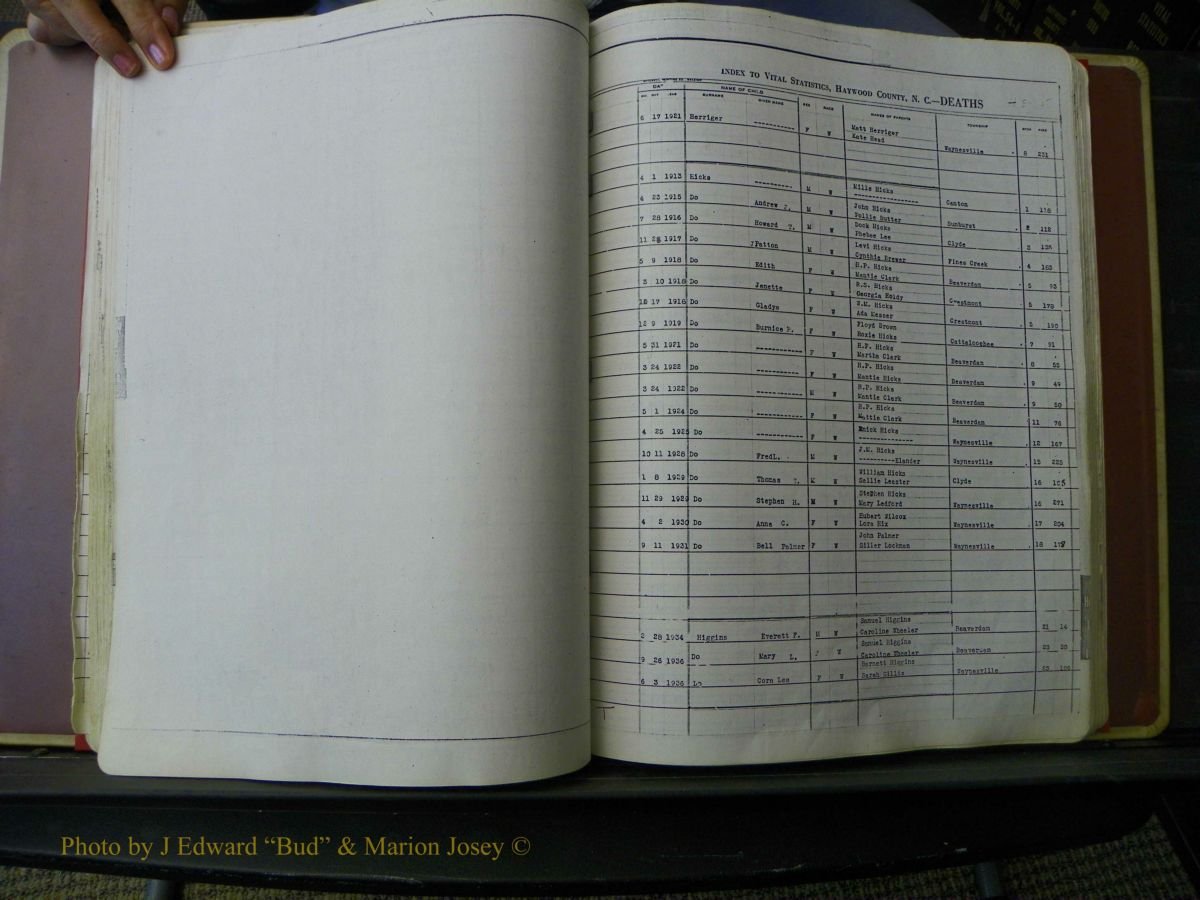 VITAL STATISTICS
INDEX TO VITAL STATISTICS, HAYWOOD COUNTY, N. C.—DEATHS
NAME OF CHILD
SURNAME GIVEN NAME SEX RACE NAMES OF PARENTS TOWNSHIP
6 17 1921 Herriger ---------- F W Matt Herriger
Kate Head Waynesville 8 231
4 1 1913 Hicks ---------- M W Mills Hicks
---------------- Canton 1 118
4 23 1915 Do Andrew J. M W John Hicks
Pollie Rutter Sunburst 2 112
7 28 1916 Do Howard T. M W Dock Hicks
Phebee Lee Clyde 3 135
11 28 1917 Do Patton M W Levi Hicks
Cynthia Brewer Fines Creek 4 183
5 9 1918 Do Edith F W H.P. Hicks
Mantie Clark Beaverdam 5 93
3 10 1918 Do Janette F W R.S. Hicks
Georgia Holdy Crestmont 5 178
10 17 1918 Do Gladys F W W.M. Hicks
Ada Messer Crestmont 5 190
12 9 1919 Do Burnice P. F W Floyd Brown
Roxie Hicks Cattaloochee 7 91
5 31 1921 Do ---------- F W H.P. Hicks
Martha Clark Beaverdam 8 55
3 24 1922 Do ---------- F W H.P. Hicks
Mantie Hicks Beaverdam 9 49
3 24 1922 Do ---------- F W H.P. Hicks
Mantie Clark Beaverdam 9 50
5 1 1924 Do ---------- F W H.P. Hicks
Mattie Clark Beaverdam 11 76
4 25 1925 Do ---------- F W Hicks
-------------- Waynesville 12 167
10 11 1928 Do FredL. M W J.M. Hicks
----------Elander Waynesville 15 225
1 8 1929 Do Thomas M W William Hicks
Sallie Leaster Clyde 16 105
11 29 1929 Do Stephen H. M W Stephen Hicks
Mary Ledford Waynesville 16 271
4 2 1930 Do Anna C. F W Hubert Wilcox
Lora Hix Waynesville 17 204
9 11 1931 Do Bell Palmer F W John Palmer
Siller Lockman Waynesville 18
2 28 1934 Higgins Everett F. M W Samuel Higgins
Caroline Wheeler Beaverdam 21 14
9 26 1936 Do Mary L. W Samuel Higgins
Caroline Wheeler Beaverdam 23
6 3 1936 Do Cora Lee F W Barnett Higgins
Sarah Gillis Waynesville
Photo by J Edward “Bud” & Marion Josey ©